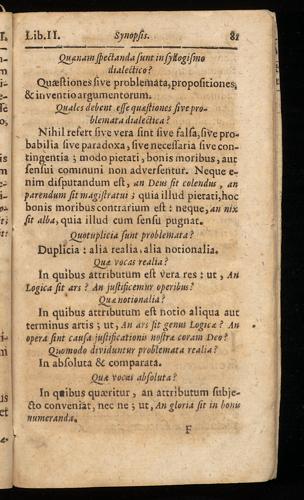 Lib. II. Synopsis. 81
Quænam spectanda sunt in syllogismo
dialectico?
Quæstiones sive problemata, propositiones,
& inventio argumentorum.
Quales debent esse quæstiones sive pro-
blemata dialectica?
Nihil refert sive vera sint sive falsa, sive pro-
babilia sive paradoxa, sive necessaria sive con-
tingentia; modo pietati, bonis moribus, aut
sensui communi non adversentur. Neque e-
nim disputandum est, an Deus sit colendus, an
parendum sit magistratui; quia illud pietati, hoc
bonis moribus contrarium est: neque, an nix
sit alba, quia illud cum sensu pugnat.
Quotuplicia sunt problemata?
Duplicia: alia realia, alia notionalia.
Quæ vocas realia?
In quibus attributum est vera res: ut, An
Logica sit ars? An justificemur operibus?
Quæ notionalia?
In quibus attributum est notio aliqua aut
terminus artis; ut, An ars sit genus Logicæ? An
opera sint causa justificationis nostræ coram Deo?
Quomodo dividuntur problemata realia?
In absoluta & comparata.
Quæ vocas absoluta?
In quibus quæritur, an attributum subje-
cto conveniat, nec ne; ut, An gloria sit in bonis
numeranda.
F